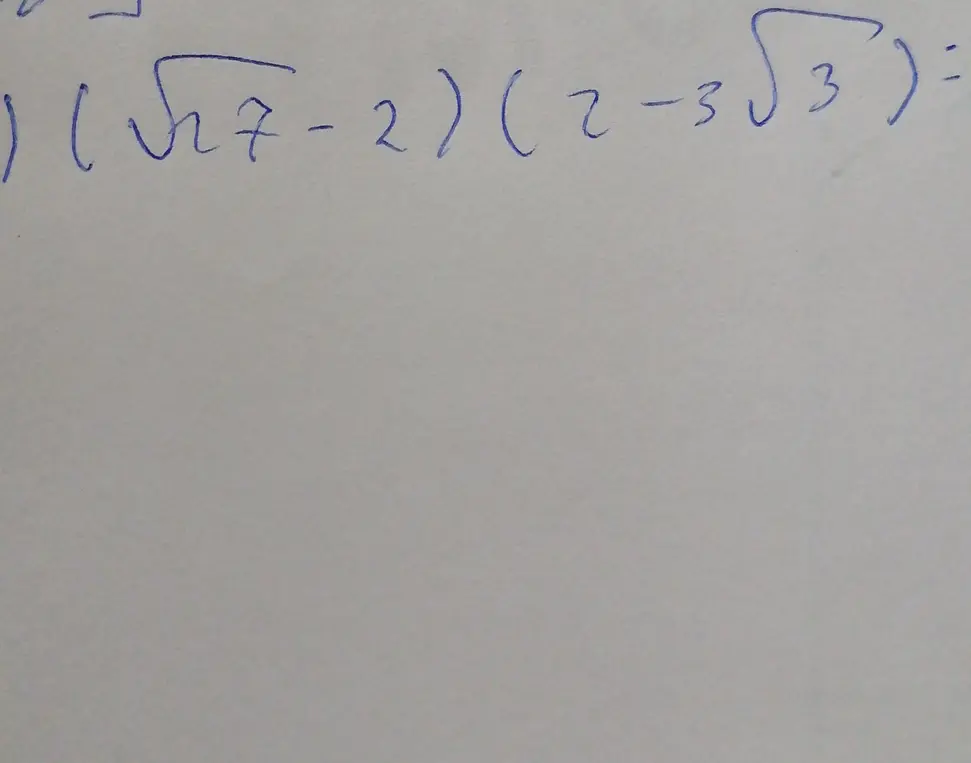 ) (√27 - 2) (2 - 3√3) =